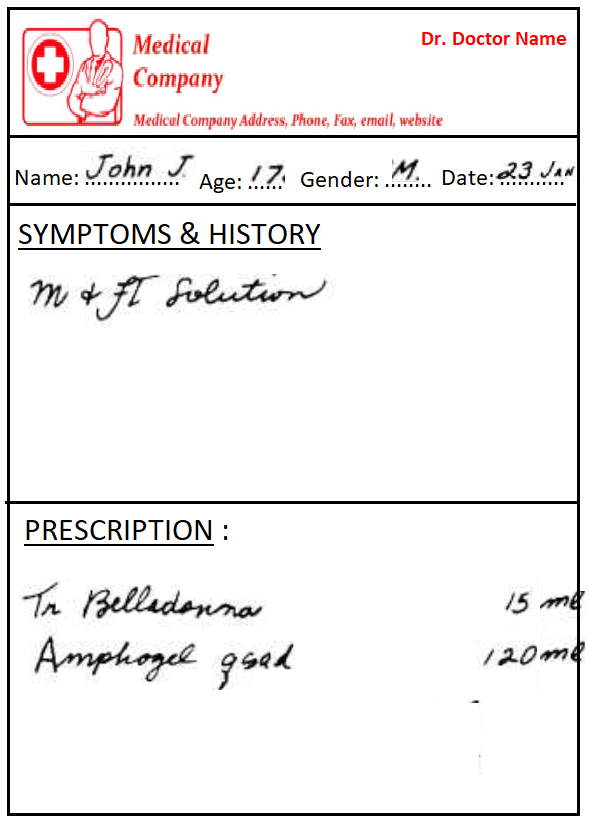 Dr. Doctor Name
Medical
Company
Medical Company Address, Phone, Fax, email, website
Name: John J. Age: 17. Gender: M. Date: 23 JAN
SYMPTOMS & HISTORY
M & FT Solution
PRESCRIPTION :
Tr Belladonna 15 ml
Amphogel qsad 120 ml